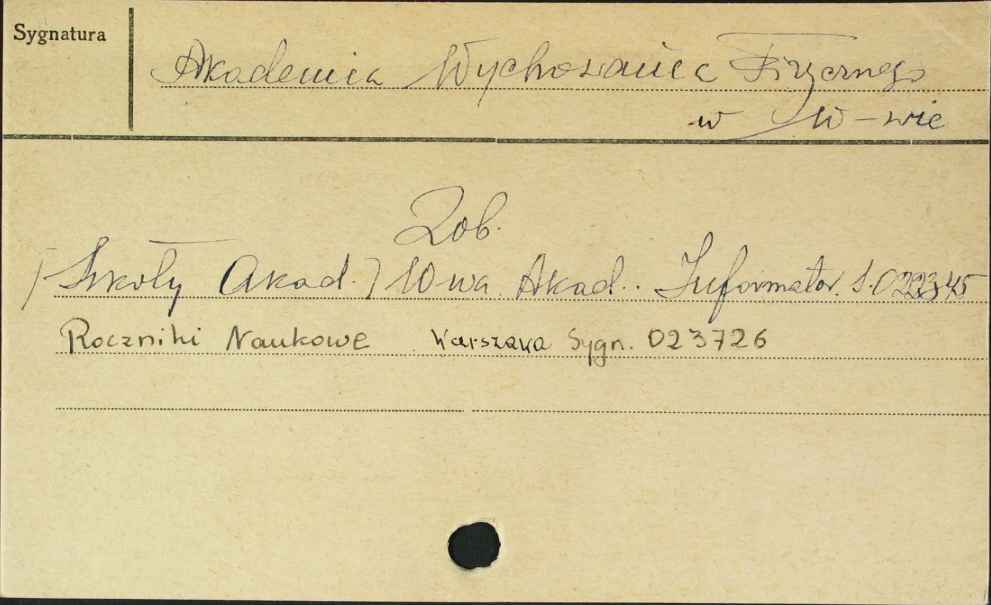 Sygnatura
Akademia Wychowania Fizycznego
w W-wie
Zob.
/Szkoły Akad./ W-wa. Akad.. Informator. S.
Roczniki Naukowe Warszawa Sygn. 023726